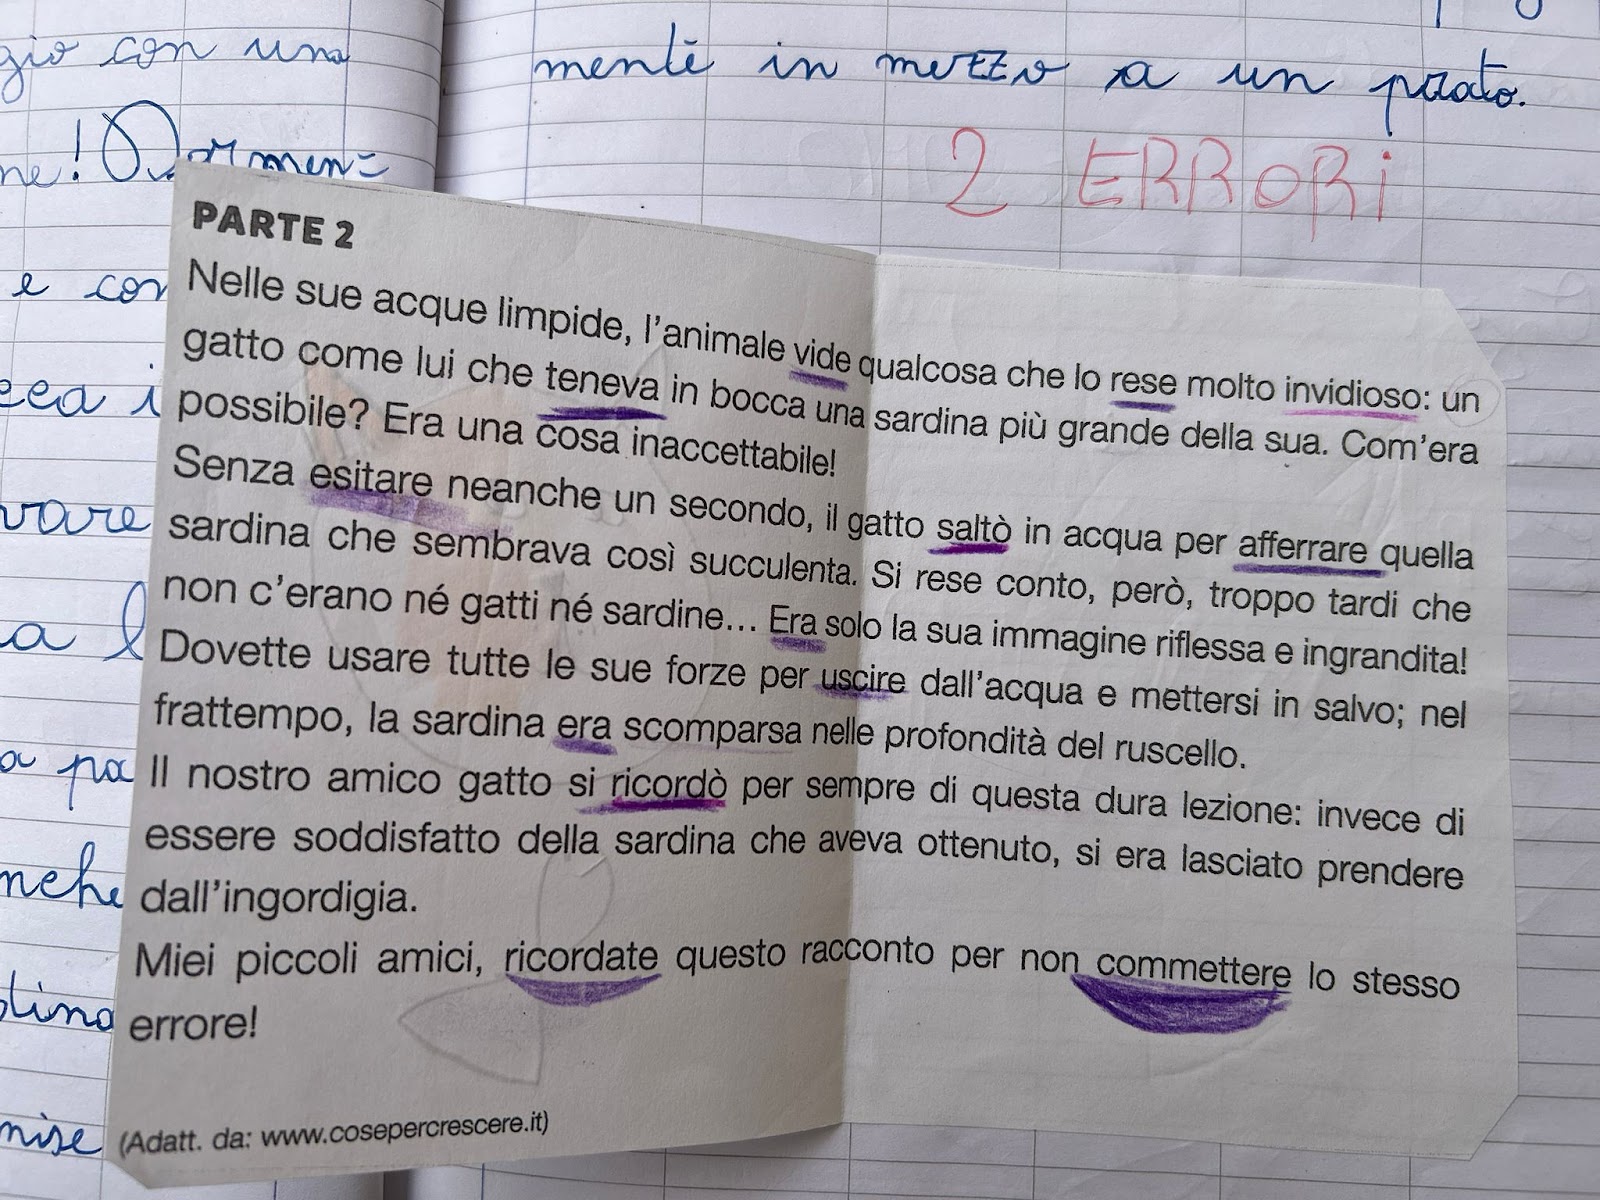 gio con una
ne! Dormen=
e con
vare
a l
a pa
nche
mise
mente in mezzo a un prato.
2 ERRORi
PARTE 2
Nelle sue acque limpide, l'animale vide qualcosa che lo rese molto invidioso: un
gatto come lui che teneva in bocca una sardina più grande della sua. Com'era
possibile? Era una cosa inaccettabile!
Senza esitare neanche un secondo, il gatto saltò in acqua per afferrare quella
sardina che sembrava così succulenta. Si rese conto, però, troppo tardi che
non c'erano né gatti né sardine... Era solo la sua immagine riflessa e ingrandita!
Dovette usare tutte le sue forze per uscire dall'acqua e mettersi in salvo; nel
frattempo, la sardina era scomparsa nelle profondità del ruscello.
Il nostro amico gatto si ricordò per sempre di questa dura lezione: invece di
essere soddisfatto della sardina che aveva ottenuto, si era lasciato prendere
dall'ingordigia.
Miei piccoli amici, ricordate questo racconto per non commettere lo stesso
errore!
(Adatt. da: www.cosepercrescere.it)